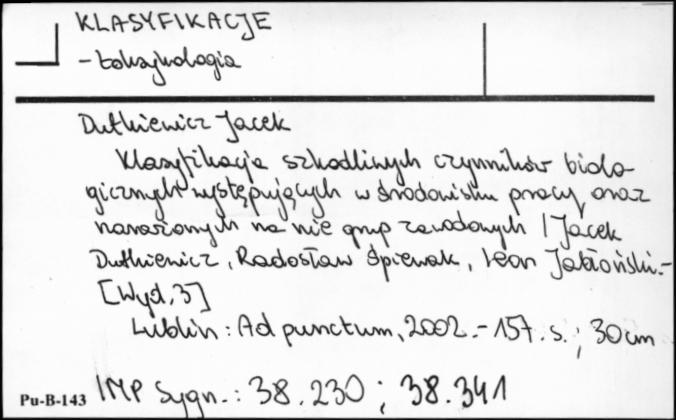 KLASYFIKACJE
- toksykologia
Dutkiewicz Jacek
Klasyfikacja szkodliwych czynników biolo-
gicznych występujących w środowisku pracy oraz
narażonych na nie grup zawodowych / Jacek
Dutkiewicz, Radosław Śpiewak, Leon Jabłoński.-
[Wyd. 3]
Lublin : Ad punctum, 2002.- 157. s. ; 30 cm
Pu-B-143 IMP Sygn. : 38.230 ; 38.341